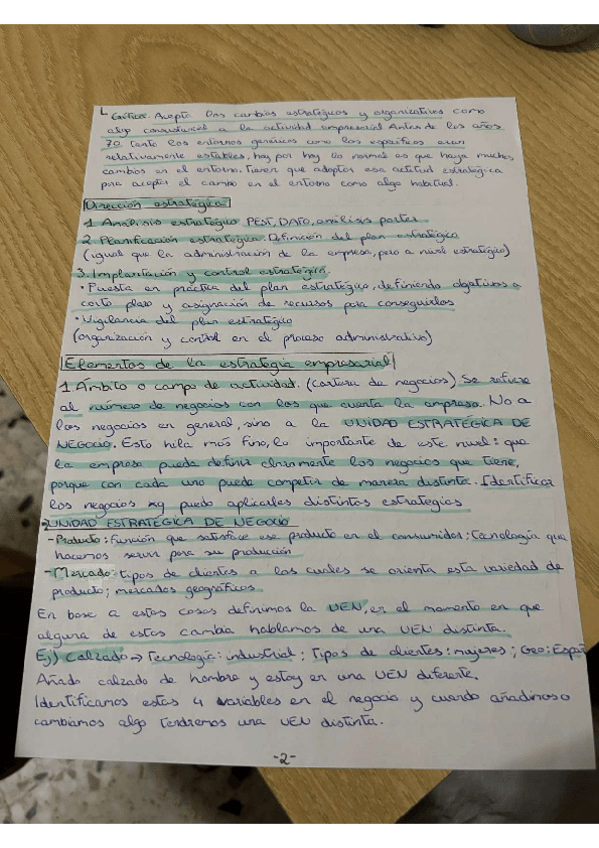 Crítica. Acepta los cambios estratégicos y organizativos como
algo consustancial a la actividad empresarial. Antes de los años
70 tanto los entornos genéricos como los específicos eran
relativamente estables, hoy por hoy lo normal es que haya muchos
cambios en el entorno. Tienen que adoptar esa actitud estratégica
para aceptar el cambio en el entorno como algo habitual.
Dirección estratégica
1 Análisis estratégico PEST, DAFO, análisis porter
2 Planificación estratégica. Definición del plan estratégico
(igual que la administración de la empresa, pero a nivel estratégico)
3. Implantación y control estratégico.
• Puesta en práctica del plan estratégico, definiendo objetivos a
corto plazo y asignación de recursos para conseguirlos
• Vigilancia del plan estratégico
(organización y control en el proceso administrativo)
Elementos de la estrategia empresarial
1 Ámbito o campo de actividad. (cartera de negocios). Se refiere
al número de negocios con los que cuenta la empresa. No a
los negocios en general, sino a la UNIDAD ESTRATÉGICA DE
NEGOCIO. Esto hila más fino, lo importante de este nivel: que
la empresa pueda definir claramente los negocios que tiene,
porque con cada uno puede competir de manera distinta. Identificar
los negocios xq puedo aplicarles distintos estrategias
• UNIDAD ESTRATÉGICA DE NEGOCIO
- Producto: función que satisface ese producto en el consumidor; tecnología que
hacemos servir para su producción
- Mercado: tipos de clientes a los cuales se orienta esta variedad de
producto; mercados geográficos.
En base a estas cosas definimos la UEN, en el momento en que
alguna de estas cambia hablamos de una UEN distinta.
Ej) Calzado → Tecnología: industrial; Tipos de clientes: mujeres; Geo: Españ
Añado calzado de hombre y estoy en una UEN diferente.
Identificamos estas 4 variables en el negocio y cuando añadimos o
cambiamos algo tendremos una UEN distinta.
-2-